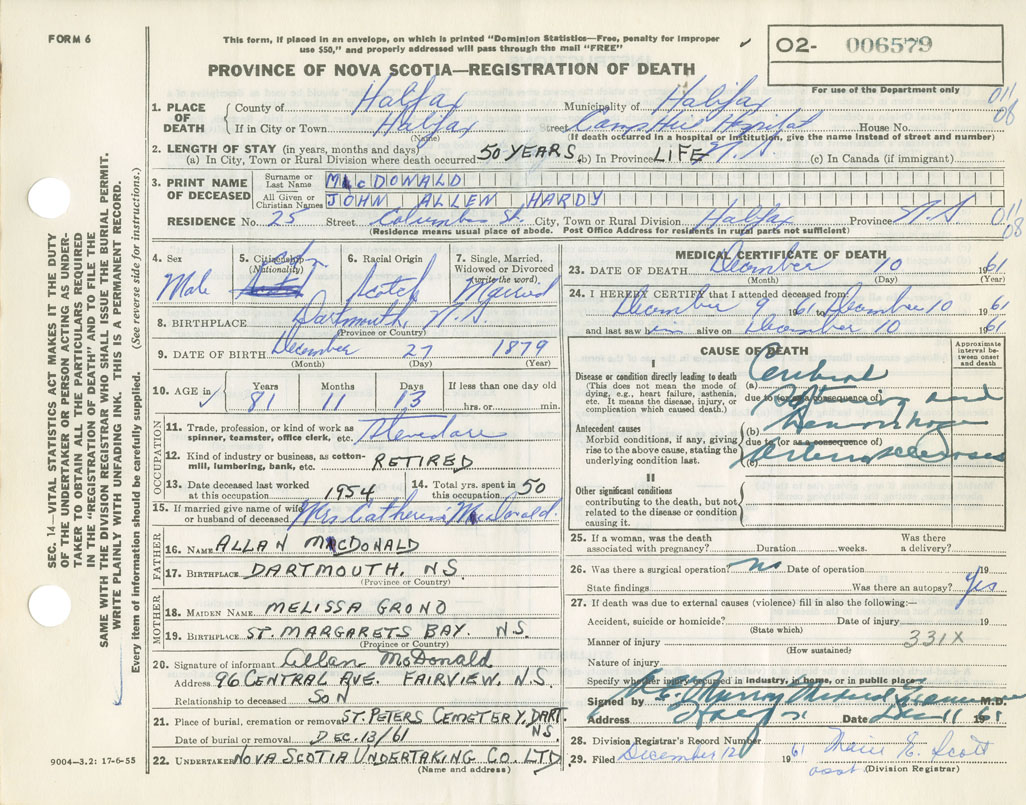 FORM 6
This form, if placed in an envelope, on which is printed "Dominion Statistics—Free, penalty for improper
use $50," and properly addressed will pass through the mail "FREE"
02- 006579
PROVINCE OF NOVA SCOTIA—REGISTRATION OF DEATH
For use of the Department only
011
08
1. PLACE OF DEATH
County of Halifax Municipality of Halifax
If in City or Town Halifax Street Camp Hill Hospital House No.
(Name) (If death occurred in a hospital or institution, give the name instead of street and number)
2. LENGTH OF STAY (in years, months and days)
(a) In City, Town or Rural Division where death occurred 50 YEARS (b) In Province LIFE N.S. (c) In Canada (if immigrant)
3. PRINT NAME OF DECEASED
Surname or Last Name MacDONALD
All Given or Christian Names JOHN ALLEN HARDY
RESIDENCE No. 25 Street Columbus St. City, Town or Rural Division Halifax Province N.S
011
08
(Residence means usual place of abode. Post Office Address for residents in rural parts not sufficient)
4. Sex Male
5. Citizenship (Nationality)
6. Racial Origin Scotch
7. Single, Married, Widowed or Divorced (write the word) Married
8. BIRTHPLACE Dartmouth, N.S.
(Province or Country)
9. DATE OF BIRTH December 27 1879
(Month) (Day) (Year)
10. AGE in Years 81 Months 11 Days 13 If less than one day old hrs. or min.
OCCUPATION
11. Trade, profession, or kind of work as spinner, teamster, office clerk, etc. Stevedore
12. Kind of industry or business, as cotton-mill, lumbering, bank, etc. RETIRED
13. Date deceased last worked at this occupation 1954
14. Total yrs. spent in this occupation 50
15. If married give name of wife or husband of deceased Mrs Catherine MacDonald.
FATHER
16. NAME ALLAN MacDONALD
17. BIRTHPLACE DARTMOUTH, N.S.
(Province or Country)
MOTHER
18. MAIDEN NAME MELISSA GRONO
19. BIRTHPLACE ST. MARGARETS BAY. N.S.
(Province or Country)
20. Signature of informant Allan McDonald
Address 96 CENTRAL AVE. FAIRVIEW, N.S.
Relationship to deceased SON
21. Place of burial, cremation or removal ST. PETERS CEMETERY, DART. N.S.
Date of burial or removal DEC. 13/61
22. UNDERTAKER NOVA SCOTIA UNDERTAKING CO. LTD
(Name and address)
MEDICAL CERTIFICATE OF DEATH
23. DATE OF DEATH December 10 1961
(Month) (Day) (Year)
24. I HEREBY CERTIFY that I attended deceased from:
December 9 1961 to December 10 1961
and last saw him alive on December 10 1961
CAUSE OF DEATH
Approximate interval between onset and death
I
Disease or condition directly leading to death
(This does not mean the mode of dying, e.g., heart failure, asthenia, etc. It means the disease, injury, or complication which caused death.)
(a) Cerebral
due to (or as a consequence of)
Antecedent causes
Morbid conditions, if any, giving rise to the above cause, stating the underlying condition last.
(b) Hemorrhage
due to (or as a consequence of)
(c) Arteriosclerosis
II
Other significant conditions
contributing to the death, but not related to the disease or condition causing it.
25. If a woman, was the death associated with pregnancy? Duration weeks. Was there a delivery?
26. Was there a surgical operation? no Date of operation 19
State findings Was there an autopsy? Yes
27. If death was due to external causes (violence) fill in also the following:—
Accident, suicide or homicide? Date of injury 19
(State which)
Manner of injury 331X
(How sustained)
Nature of injury
Specify whether injury occurred in industry, in home, or in public place
Signed by Murray Medical Examiner M.D.
Address Date Dec 11 1961
28. Division Registrar's Record Number
29. Filed December 12 1961 Marie E. Scott
asst (Division Registrar)
SEC. 14—VITAL STATISTICS ACT MAKES IT THE DUTY
OF THE UNDERTAKER OR PERSON ACTING AS UNDER-
TAKER TO OBTAIN ALL THE PARTICULARS REQUIRED
IN THE "REGISTRATION OF DEATH" AND TO FILE THE
SAME WITH THE DIVISION REGISTRAR WHO SHALL ISSUE THE BURIAL PERMIT.
WRITE PLAINLY WITH UNFADING INK. THIS IS A PERMANENT RECORD.
Every item of information should be carefully supplied. (See reverse side for instructions.)
9004—3.2: 17-6-55